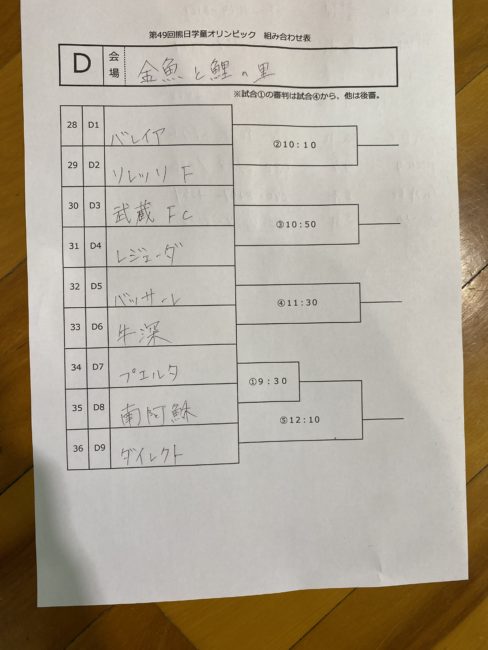 第49回熊日学童オリンピック 組み合わせ表
D 会場 金魚と鯉の里
※試合①の審判は試合④から、他は後審。
28 D1 バレイア
②10:10
29 D2 ソレッソ F
30 D3 武蔵 FC
③10:50
31 D4 レジェーダ
32 D5 バッサーレ
④11:30
33 D6 牛深
34 D7 プエルタ
①9:30
35 D8 南阿蘇
⑤12:10
36 D9 ダイレクト